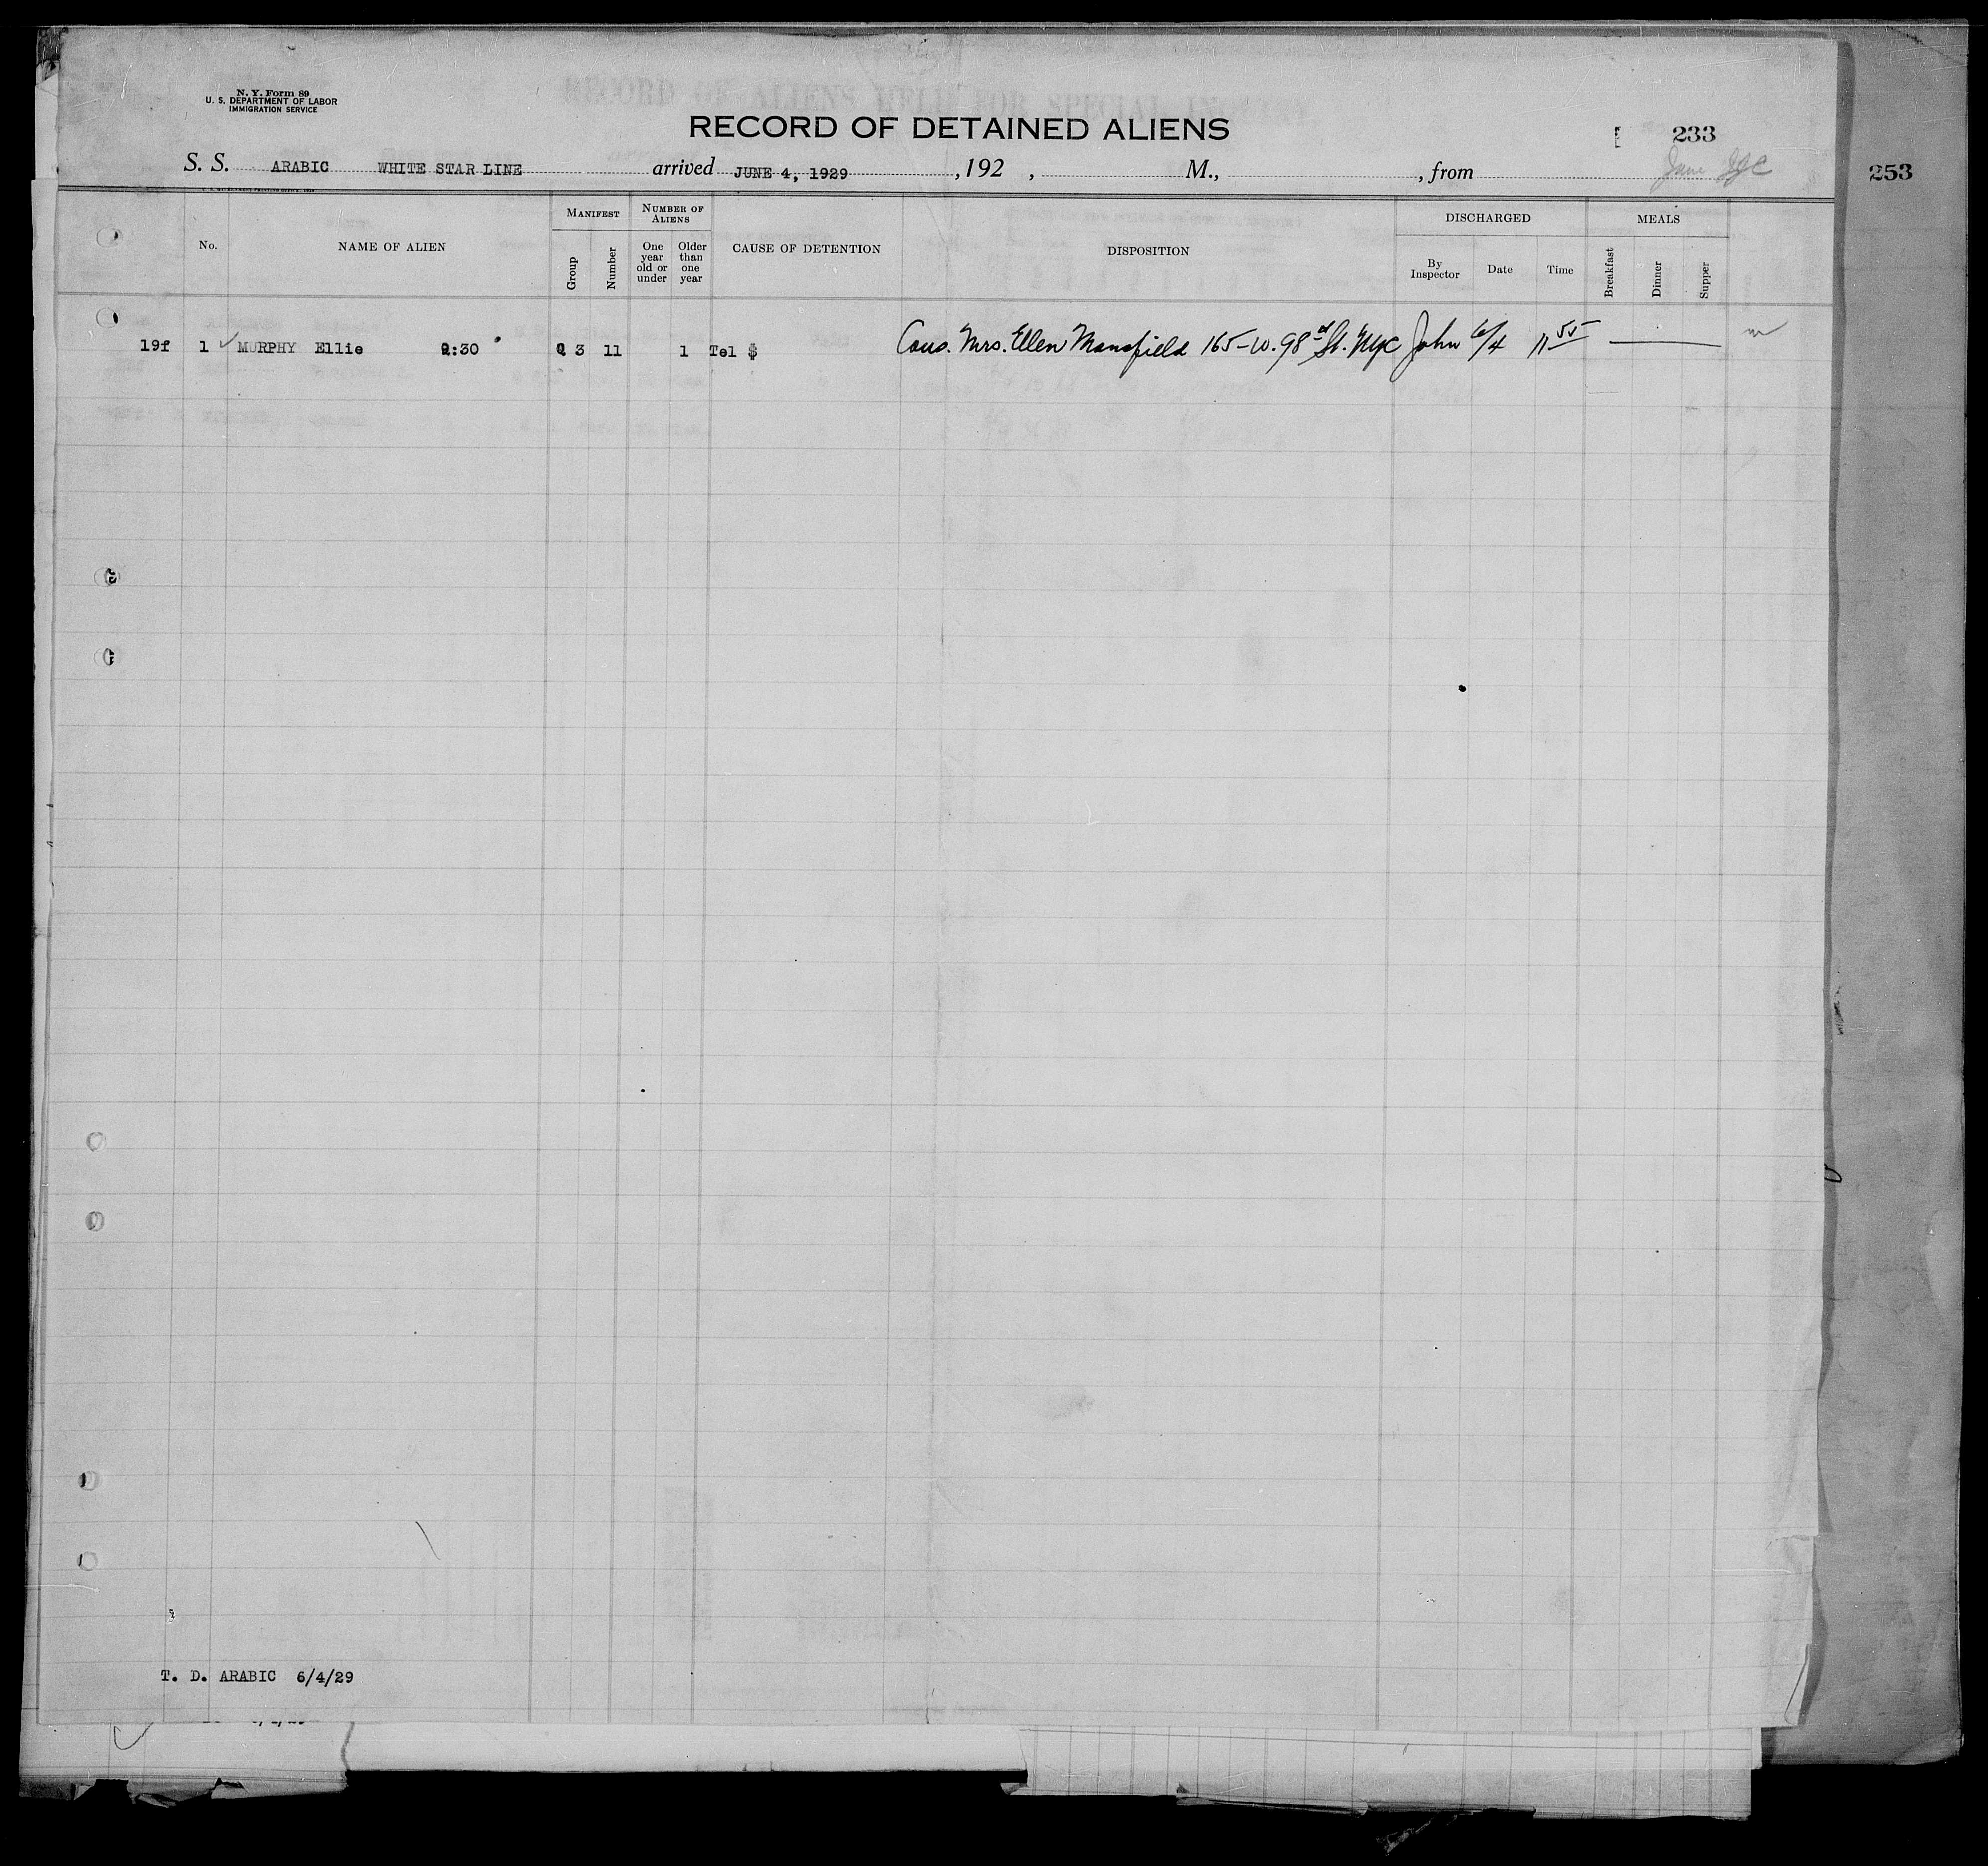 N. Y. Form 89
U. S. DEPARTMENT OF LABOR
IMMIGRATION SERVICE
RECORD OF ALIENS HELD FOR SPECIAL INQUIRY
RECORD OF DETAINED ALIENS
233
253
S. S. ARABIC WHITE STAR LINE arrived JUNE 4, 1929 , 192 , M., , from
No.
NAME OF ALIEN
MANIFEST
Group
Number
NUMBER OF ALIENS
One year old or under
Older than one year
CAUSE OF DETENTION
DISPOSITION
DISCHARGED
By Inspector
Date
Time
MEALS
Breakfast
Dinner
Supper
19f 1 ✓ MURPHY Ellie 9:30 Q 3 11 1 Tel $ Cous. Mrs. Ellen Mansfield 165-W. 98th St. NYC John 6/4 11 55
T. D. ARABIC 6/4/29